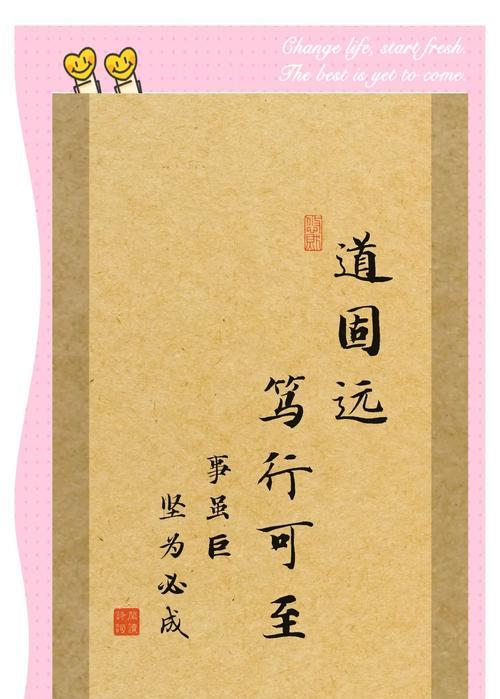 Change life, start fresh.
The best is yet to come.
道固远
笃行可至
事虽巨
坚为必成